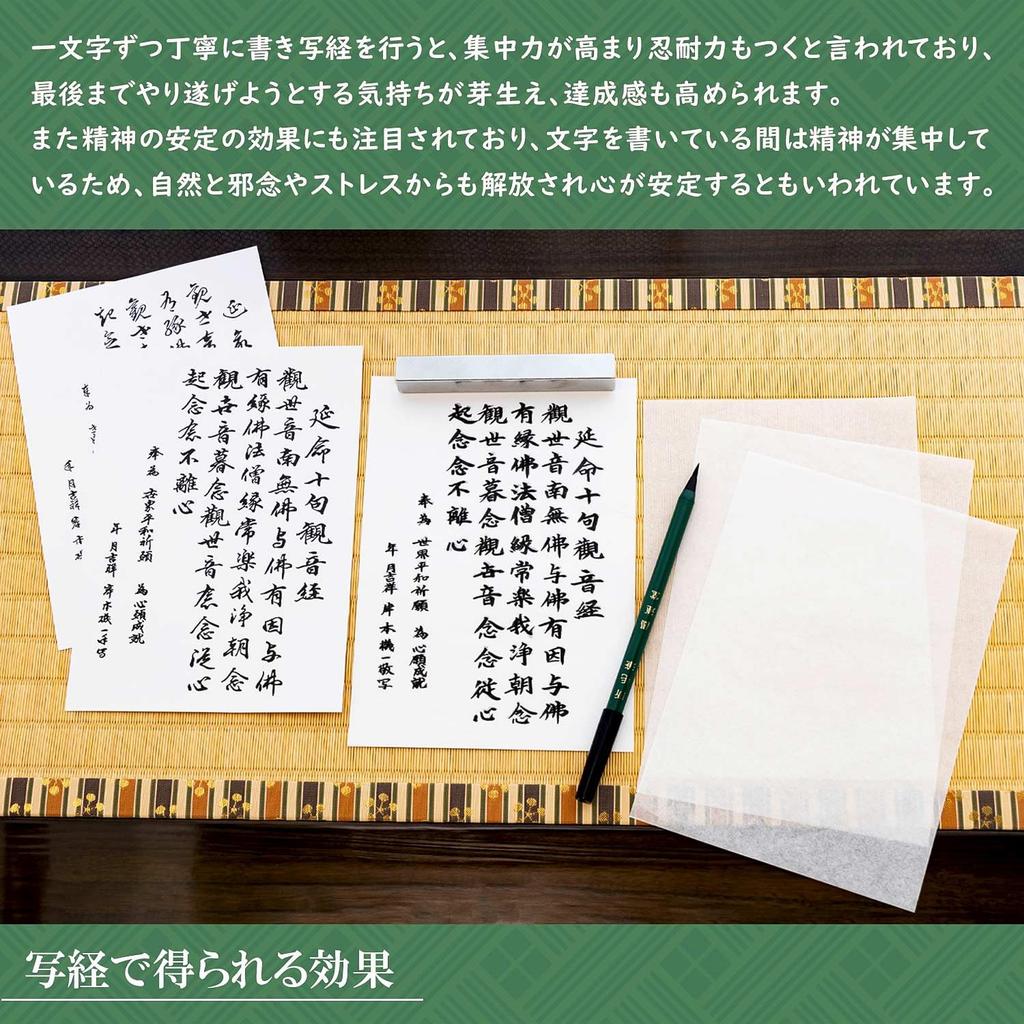 一文字ずつ丁寧に書き写経を行うと、集中力が高まり忍耐力もつくと言われており、
最後までやり遂げようとする気持ちが芽生え、達成感も高められます。
また精神の安定の効果にも注目されており、文字を書いている間は精神が集中して
いるため、自然と邪念やストレスからも解放され心が安定するともいわれています。
延命十句観音経
觀世音南無佛与佛有因与佛
有縁佛法僧縁常楽我浄朝念
觀世音暮念觀世音念念従心
起念念不離心
奉為 世界平和祈願 為心願成就
年月吉祥 岸本機一敬写
延命十句觀音経
觀世音南無佛与佛有因与佛
有縁佛法僧縁常楽我浄朝念
觀世音暮念觀世音念念従心
起念念不離心
奉為 世界平和祈願 為心願成就
年月吉祥 岸本
写経で得られる効果